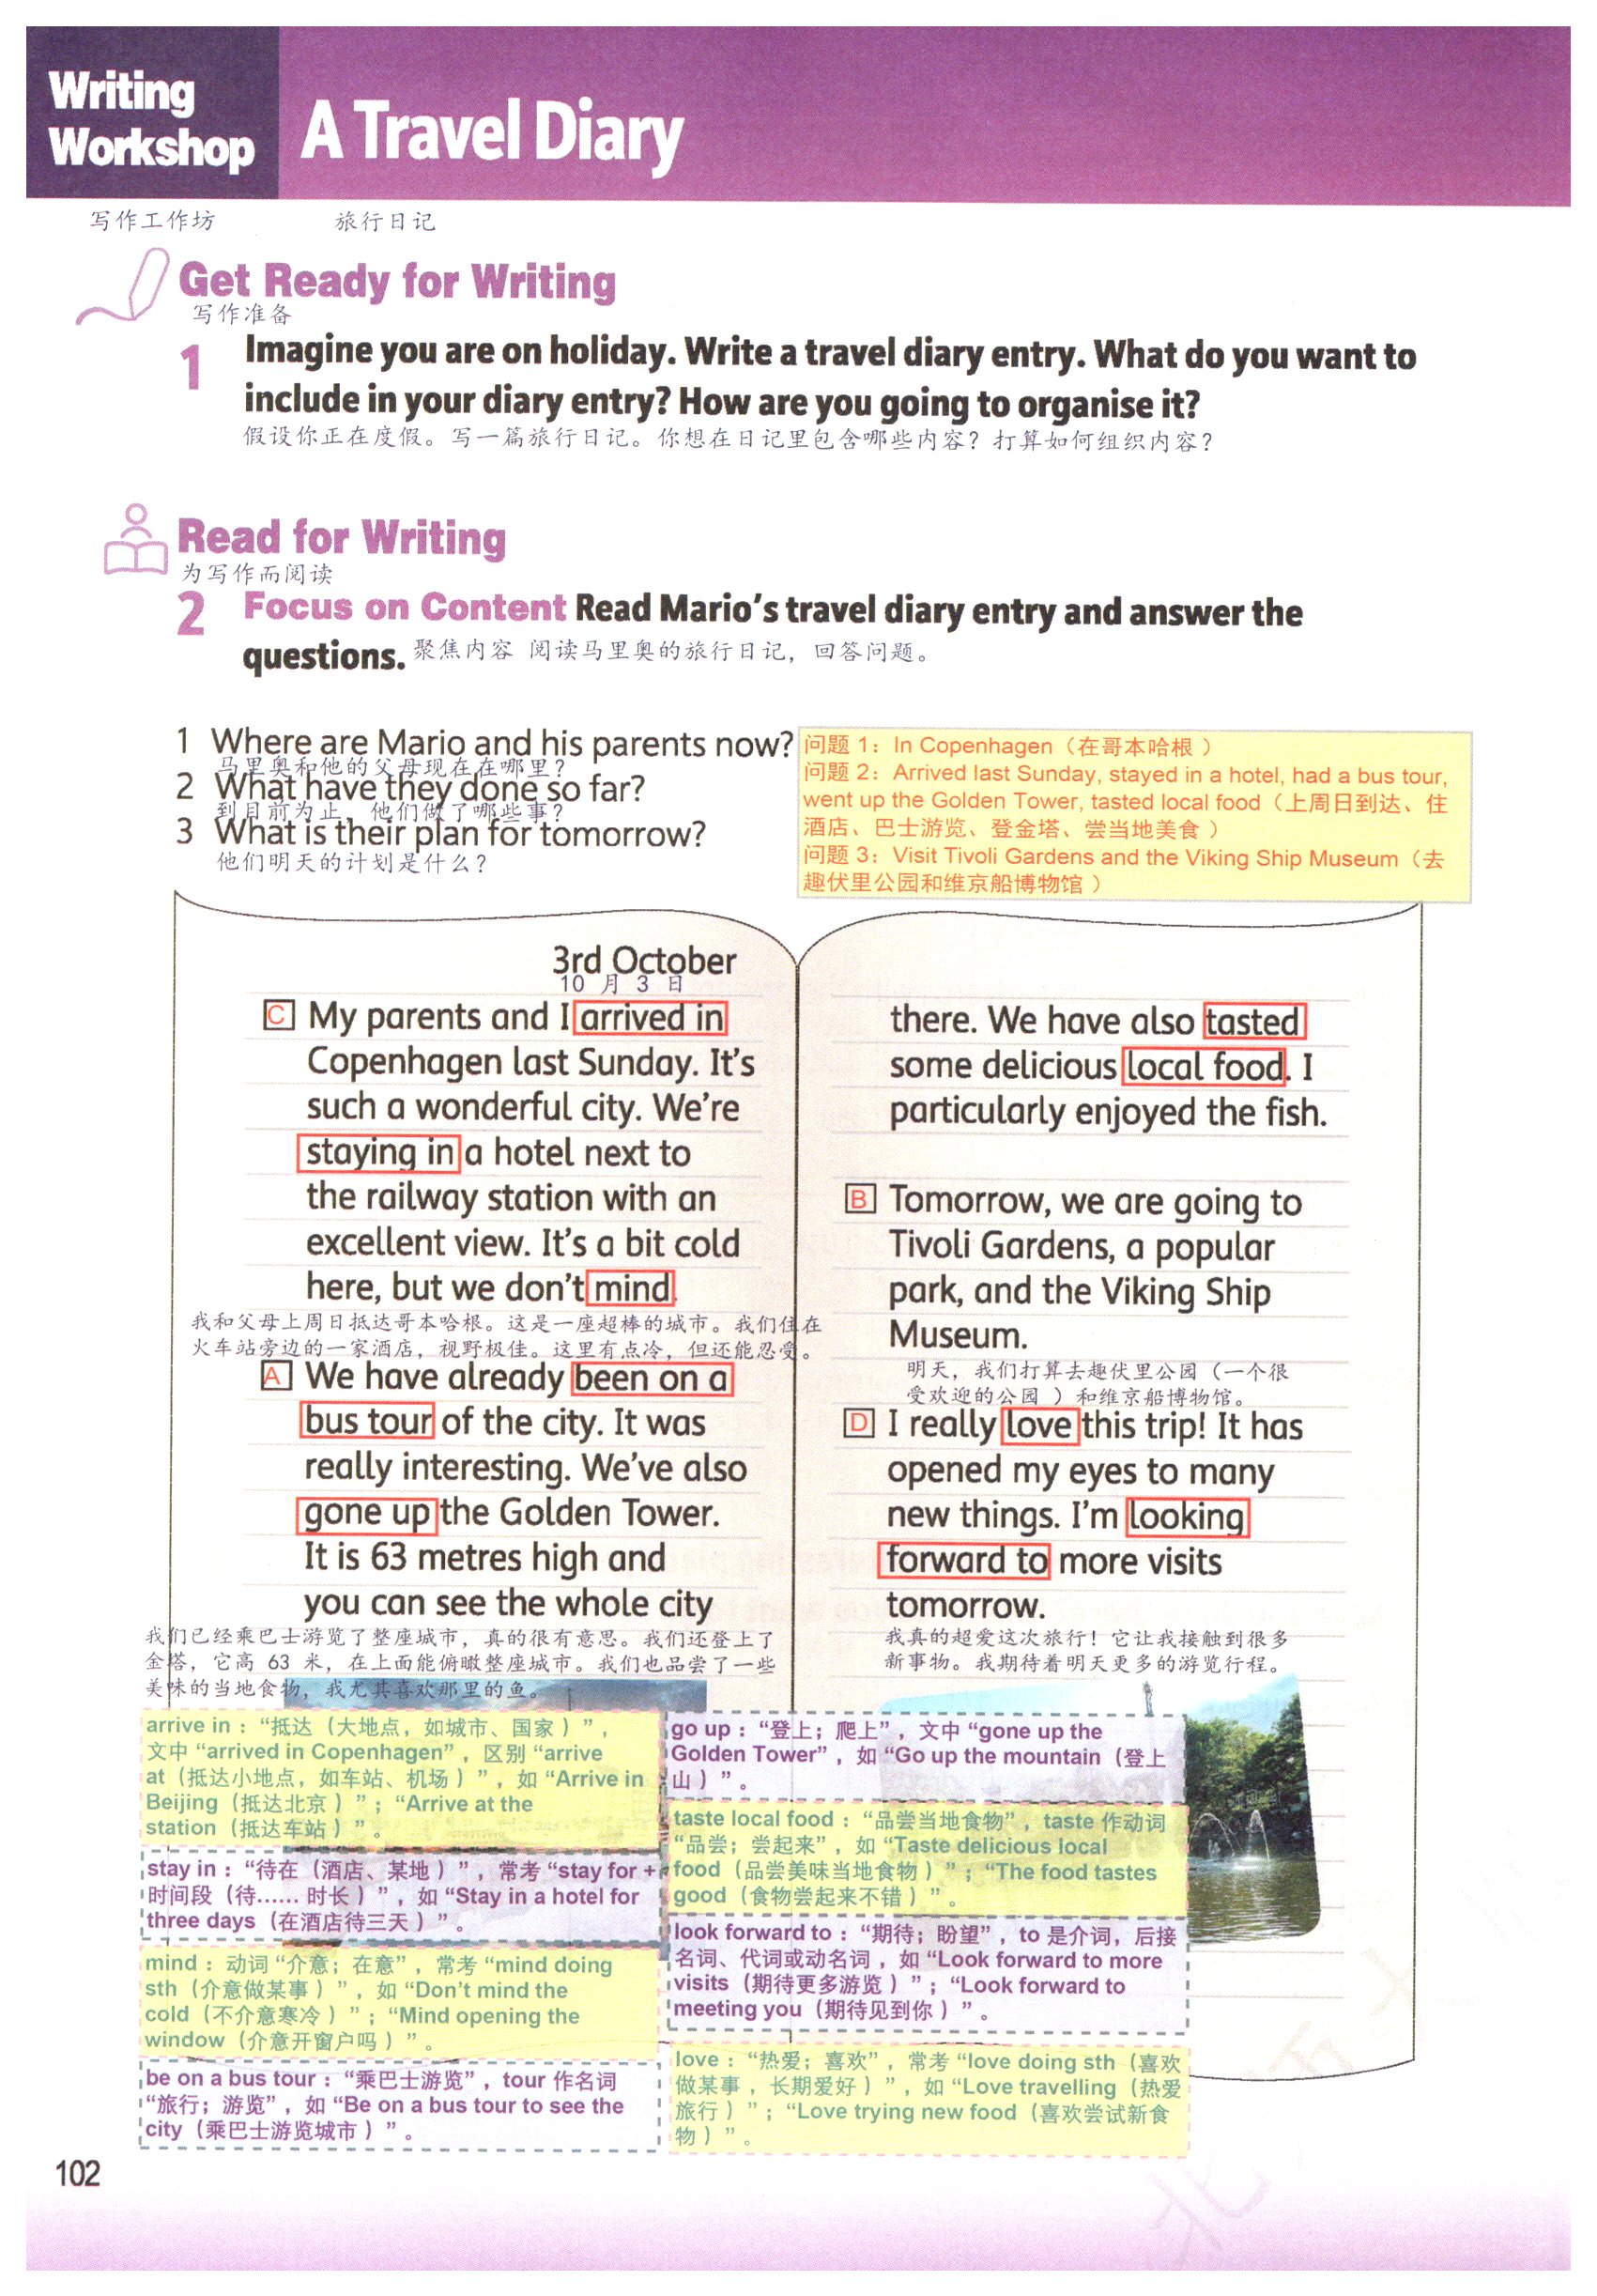 Writing
Workshop
A Travel Diary
写作工作坊
旅行日记
Get Ready for Writing
写作准备
1 Imagine you are on holiday. Write a travel diary entry. What do you want to
include in your diary entry? How are you going to organise it?
假设你正在度假。写一篇旅行日记。你想在日记里包含哪些内容？打算如何组织内容？
Read for Writing
为写作而阅读
2 Focus on Content Read Mario's travel diary entry and answer the
questions. 聚焦内容 阅读马里奥的旅行日记，回答问题。
1 Where are Mario and his parents now?
马里奥和他的父母现在在哪里？
2 What have they done so far?
到目前为止，他们做了哪些事？
3 What is their plan for tomorrow?
他们明天的计划是什么？
问题 1：In Copenhagen（在哥本哈根）
问题 2：Arrived last Sunday, stayed in a hotel, had a bus tour,
went up the Golden Tower, tasted local food（上周日到达、住
酒店、巴士游览、登金塔、尝当地美食）
问题 3：Visit Tivoli Gardens and the Viking Ship Museum（去
趣伏里公园和维京船博物馆）
3rd October
10 月 3 日
C My parents and I arrived in
Copenhagen last Sunday. It's
such a wonderful city. We're
staying in a hotel next to
the railway station with an
excellent view. It's a bit cold
here, but we don't mind.
我和父母上周日抵达哥本哈根。这是一座超棒的城市。我们住在
火车站旁边的一家酒店，视野极佳。这里有点冷，但还能忍受。
A We have already been on a
bus tour of the city. It was
really interesting. We've also
gone up the Golden Tower.
It is 63 metres high and
you can see the whole city
我们已经乘巴士游览了整座城市，真的很有意思。我们还登上了
金塔，它高 63 米，在上面能俯瞰整座城市。我们也品尝了一些
美味的当地食物，我尤其喜欢那里的鱼。
there. We have also tasted
some delicious local food. I
particularly enjoyed the fish.
B Tomorrow, we are going to
Tivoli Gardens, a popular
park, and the Viking Ship
Museum.
明天，我们打算去趣伏里公园（一个很
受欢迎的公园）和维京船博物馆。
D I really love this trip! It has
opened my eyes to many
new things. I'm looking
forward to more visits
tomorrow.
我真的超爱这次旅行！它让我接触到很多
新事物。我期待着明天更多的游览行程。
arrive in：“抵达（大地点，如城市、国家）”，
文中“arrived in Copenhagen”，区别“arrive
at（抵达小地点，如车站、机场）”，如“Arrive in
Beijing（抵达北京）”；“Arrive at the
station（抵达车站）”。
stay in：“待在（酒店、某地）”，常考“stay for +
时间段（待…… 时长）”，如“Stay in a hotel for
three days（在酒店待三天）”。
mind：动词“介意；在意”，常考“mind doing
sth（介意做某事）”，如“Don't mind the
cold（不介意寒冷）”；“Mind opening the
window（介意开窗户吗）”。
be on a bus tour：“乘巴士游览”，tour 作名词
“旅行；游览”，如“Be on a bus tour to see the
city（乘巴士游览城市）”。
go up：“登上；爬上”，文中“gone up the
Golden Tower”，如“Go up the mountain（登上
山）”。
taste local food：“品尝当地食物”，taste 作动词
“品尝；尝起来”，如“Taste delicious local
food（品尝美味当地食物）”；“The food tastes
good（食物尝起来不错）”。
look forward to：“期待；盼望”，to 是介词，后接
名词、代词或动名词，如“Look forward to more
visits（期待更多游览）”；“Look forward to
meeting you（期待见到你）”。
love：“热爱；喜欢”，常考“love doing sth（喜欢
做某事，长期爱好）”，如“Love travelling（热爱
旅行）”；“Love trying new food（喜欢尝试新食
物）”。
102